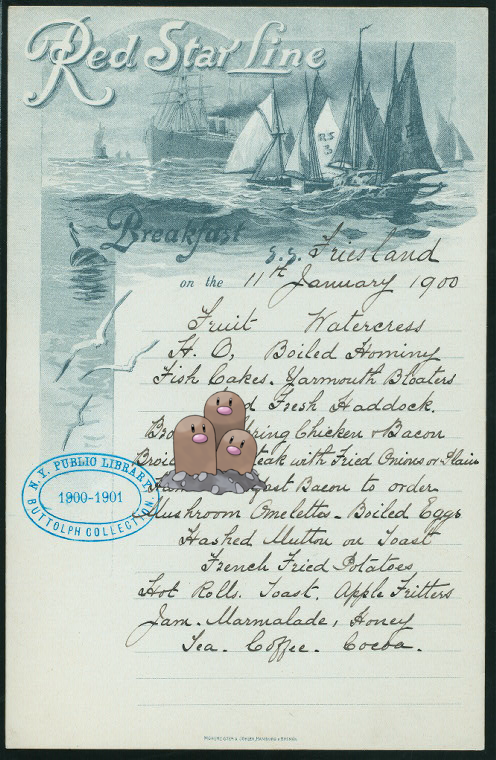 Red Star Line
RS
3
Breakfast
S.S. Friesland
on the 11th January 1900
Fruit Watercress
H. O, Boiled Hominy
Fish Cakes. Yarmouth Bloaters
Fresh Haddock.
Chicken & Bacon
with Fried Onions or Plain
Bacon to order
Mushroom Omelettes - Boiled Eggs
Hashed Mutton on Toast
French Fried Potatoes
Hot Rolls. Toast. Apple Fritters
Jam. Marmalade, Honey
Tea. Coffee. Cocoa.
N.Y. PUBLIC LIBRARY
1900-1901
BUTTOLPH COLLECTION